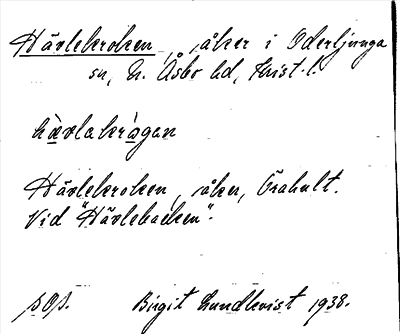 Hävlekroken, åker i Oderljunga
sn, N. Åsbo hd, Krist. l.
hävlakrågan
Hävlekroken, åker, Örahult.
Vid "Hävlebacken".
pop. Birgit Lundkvist 1938.